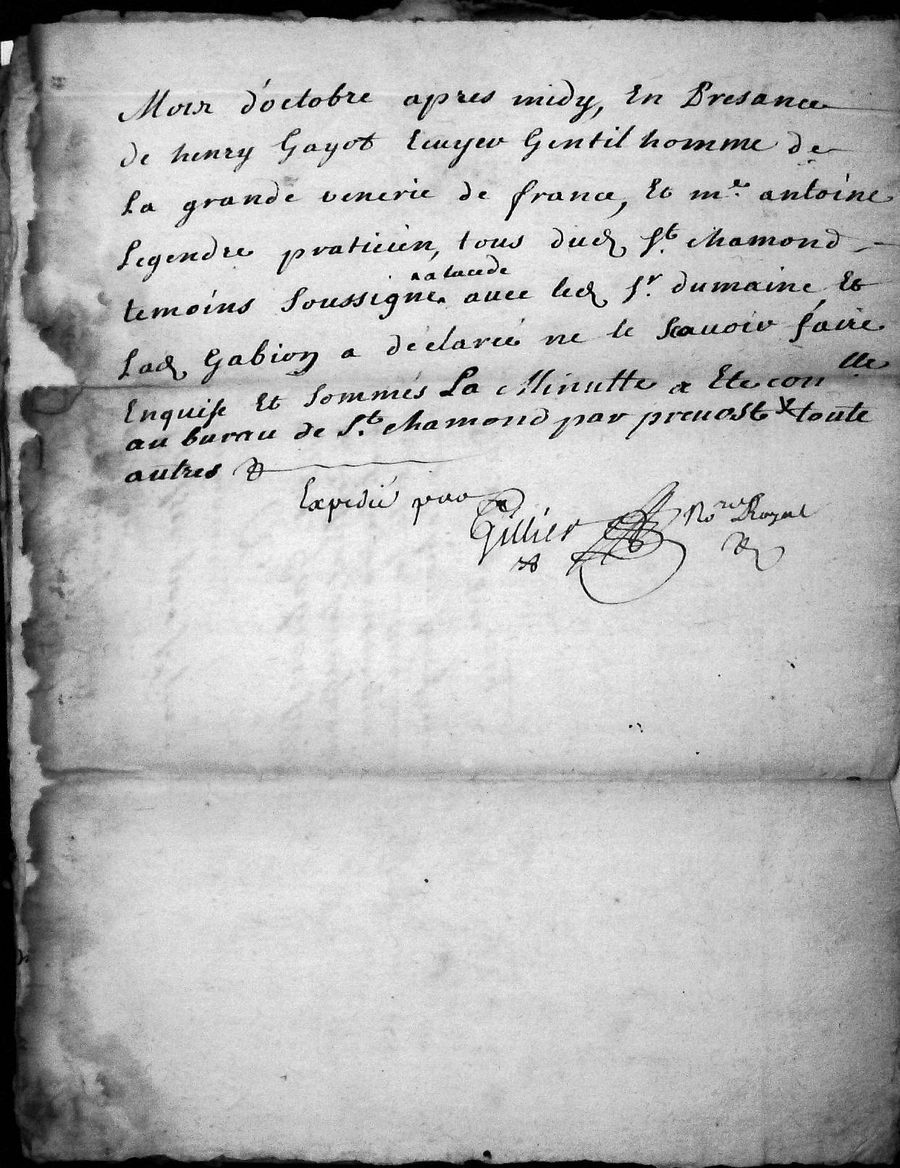 Moix d'octobre apres midy, En Presance
de henry Gayot Ecuyer Gentil homme de
La grande venerie de france, Et me antoine
Legendre praticien, tous dud St chamond
a la cede
temoins Soussignes avec led Sr dumaine Et
Lad Gabion a déclarée ne le Scavoir faire
Enquise Et Sommés La Minutte a Ete conlle
au bureau de St chamond par prevost toute
autres &
Expedié par
Gillier Nore Royal